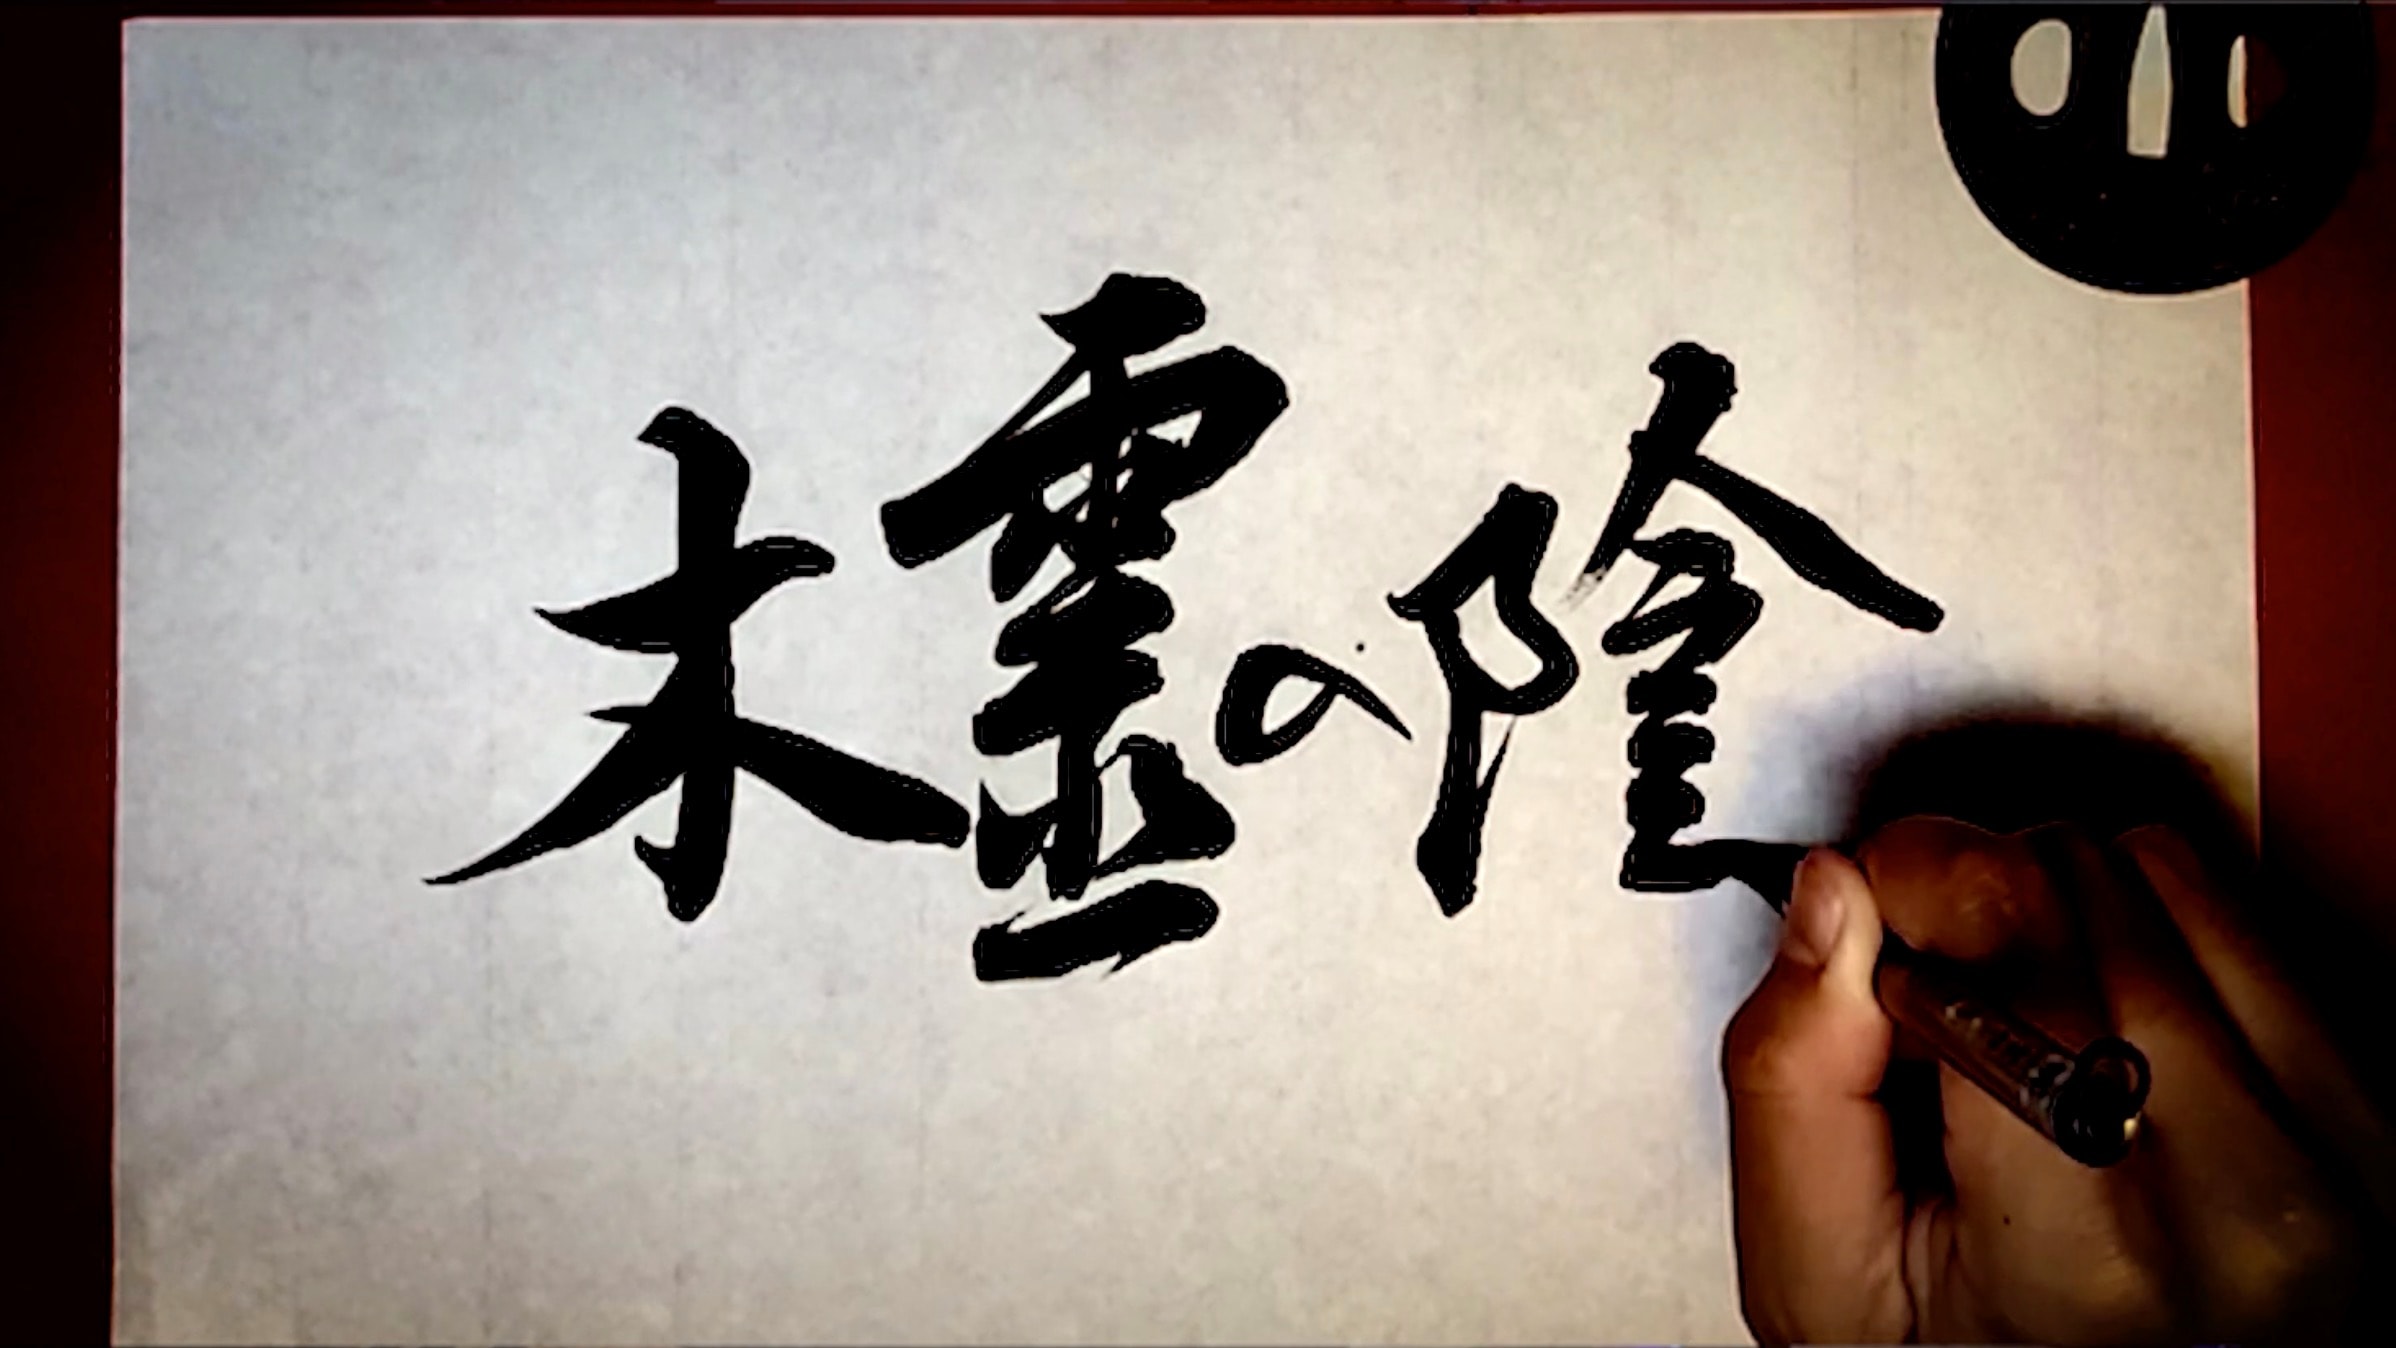 木霊の陰